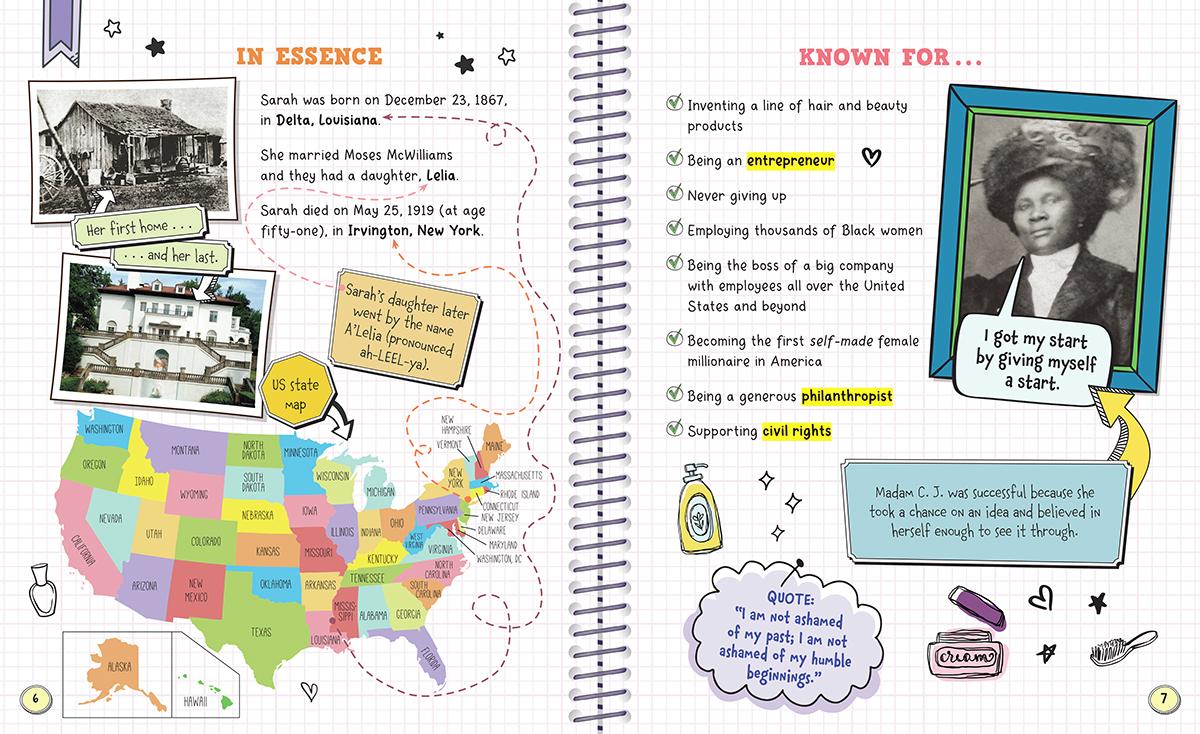 IN ESSENCE
Sarah was born on December 23, 1867,
in Delta, Louisiana.
She married Moses McWilliams
and they had a daughter, Lelia.
Sarah died on May 25, 1919 (at age
fifty-one), in Irvington, New York.
Her first home . . .
. . . and her last.
Sarah's daughter later
went by the name
A'Lelia (pronounced
ah-LEEL-ya).
US state
map
WASHINGTON
OREGON
CALIFORNIA
NEVADA
IDAHO
MONTANA
WYOMING
UTAH
ARIZONA
COLORADO
NEW
MEXICO
NORTH
DAKOTA
SOUTH
DAKOTA
NEBRASKA
KANSAS
OKLAHOMA
TEXAS
MINNESOTA
IOWA
MISSOURI
ARKANSAS
LOUISIANA
WISCONSIN
ILLINOIS
MICHIGAN
INDIANA
OHIO
KENTUCKY
TENNESSEE
MISSIS-
SIPPI
ALABAMA
GEORGIA
FLORIDA
SOUTH
CAROLINA
NORTH
CAROLINA
VIRGINIA
WEST
VIRGINIA
PENNSYLVANIA
NEW
YORK
VERMONT
NEW
HAMPSHIRE
MAINE
MASSACHUSETTS
RHODE ISLAND
CONNECTICUT
NEW JERSEY
DELAWARE
MARYLAND
WASHINGTON, DC
ALASKA
HAWAII
6
KNOWN FOR . . .
Inventing a line of hair and beauty
products
Being an entrepreneur
Never giving up
Employing thousands of Black women
Being the boss of a big company
with employees all over the United
States and beyond
Becoming the first self-made female
millionaire in America
Being a generous philanthropist
Supporting civil rights
I got my start
by giving myself
a start.
Madam C. J. was successful because she
took a chance on an idea and believed in
herself enough to see it through.
QUOTE:
"I am not ashamed
of my past; I am not
ashamed of my humble
beginnings."
cream
7